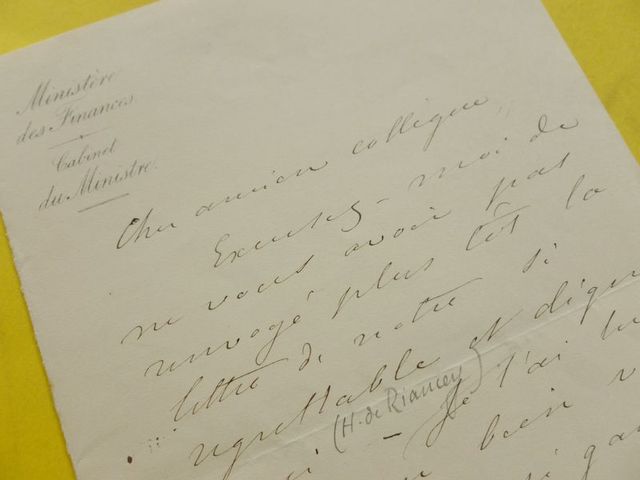 Ministère
des Finances
Cabinet
du Ministre.
Cher ancien collègue,
Excusez-moi de
ne vous avoir pas
renvoyé plus tôt la
lettre de notre si
regrettable et digne
(H. de Riancey)
— Je l'ai
bien